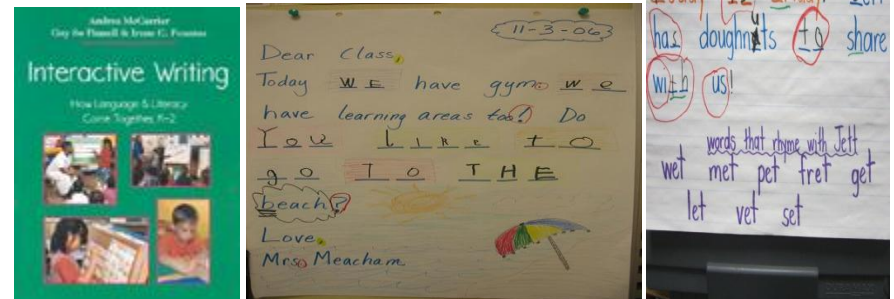 Andrea McCarrier
Gay Su Pinnell & Irene C. Fountas
Interactive Writing
How Language & Literacy
Come Together, K-2
11-3-06
Dear Class,
Today WE have gym. We
have learning areas too! Do
You Like to
go TO THE
beach?
Love,
Mrs. Meacham
has doughnuts to share
with us!
words that rhyme with Jett
wet met pet fret get
let vet set